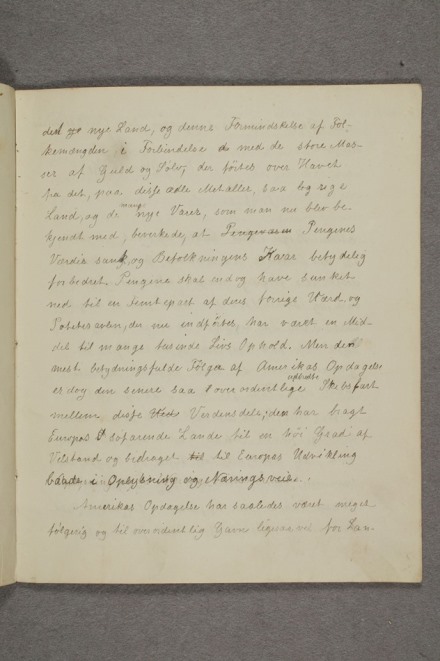 det nye Land, og denne Formindskelse af Fol-
kemængden i Forbindelse med de store Mas-
er af Guld og Sølv, der førtes over Havet
fra det, paa disse ædle Metaller, saa
Land, og de mange nye Varer, som man nu blev be-
kjendt med, bevirkede, at Pengenes
Værdi sank, og Befolkningens Kaar betydelig
forbedret. Pengene skal endog have sunket
ned til en Femtepart af dens forrige Værd, og
Potetesavlen, der nu indførtes, har været en Mid-
del til mange tusinde Livs Ophold. Men den
mest betydningsfulde Følge af Amerikas Opdagelse
er dog den senere saa overordentlige Skibsfart
mellem disse Verdensdele; den har bragt
Europas søfarende Lande til en høi Grad af
Velstand og bedraget til Europas Udvikling
baade i Oplysning og Næringsveie.
Amerikas Opdagelse har saaledes været meget
følgerig og til overordentlig Gavn ligesaavel for Lan-